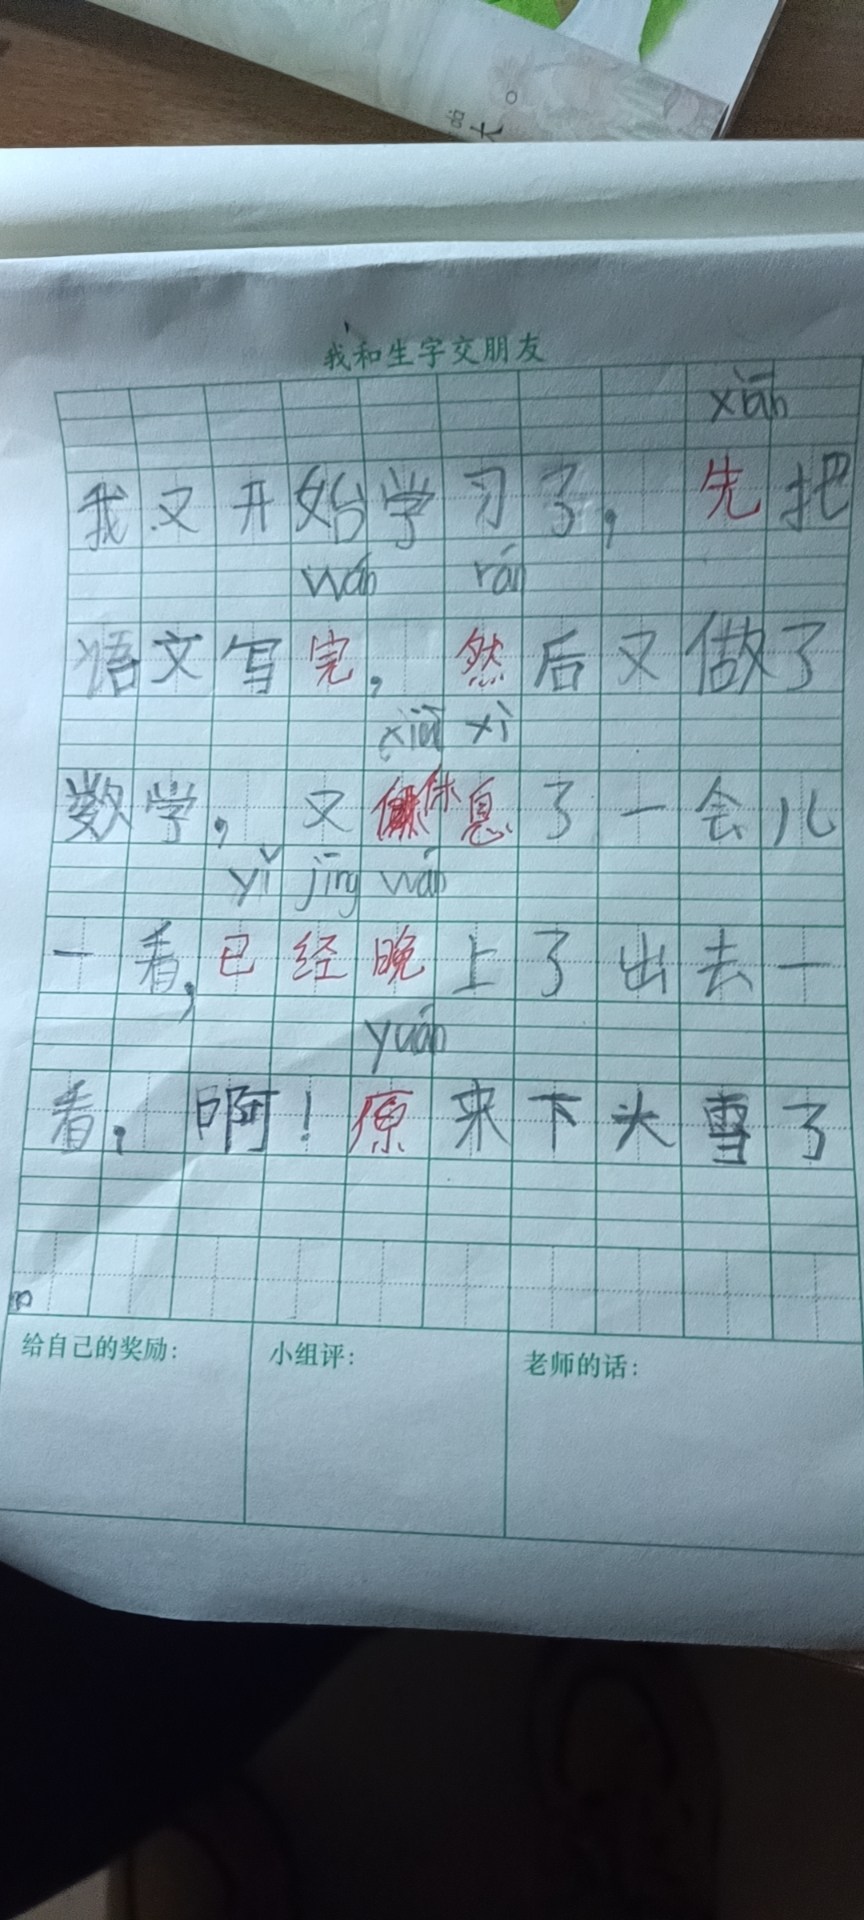 我和生字交朋友
xiān
我又开始学习了，先把
wán rán
语文写完，然后又做了
xiū xi
数学，又休息了一会儿
yǐ jīng wán
一看，已经晚上了出去一
yuán
看，啊！原来下大雪了
给自己的奖励： 小组评： 老师的话：